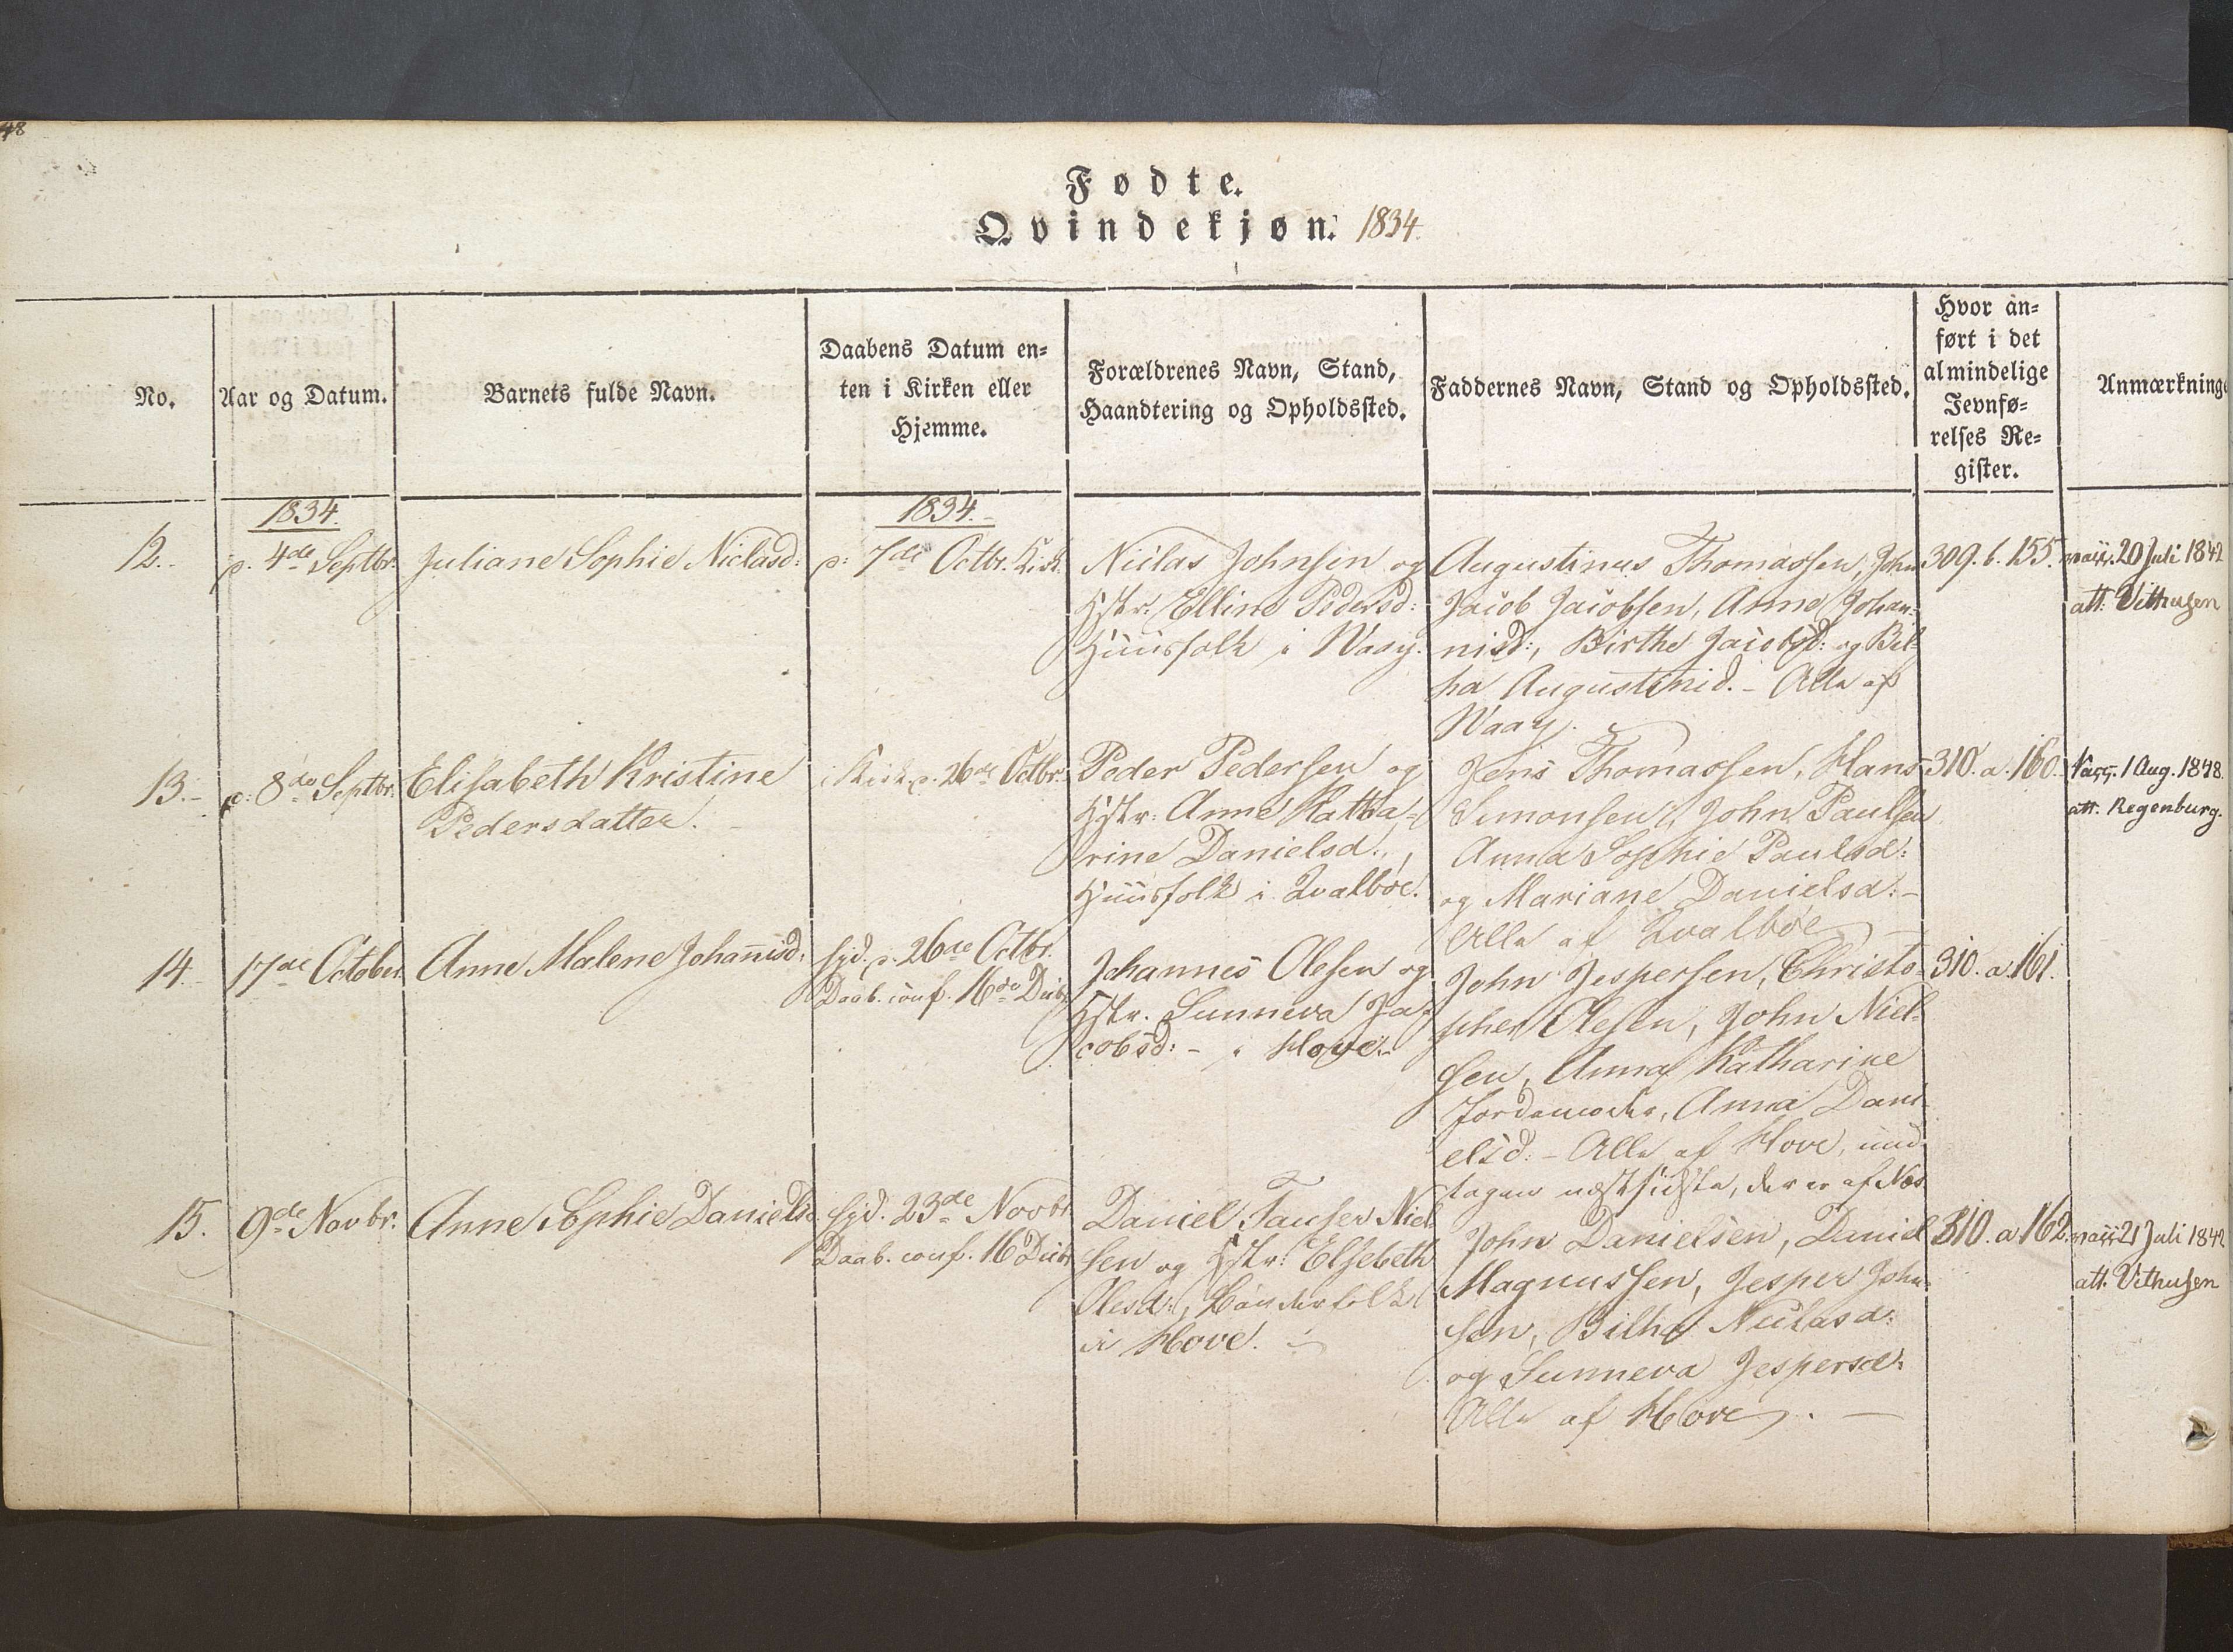 48
Fødte.
Qvindekjøn. 1834.
No.
Aar og Datum.
Barnets fulde Navn.
Daabens Datum en-
ten i Kirken eller
Hjemme.
Forældrenes Navn, Stand,
Haandtering og Opholdssted.
Faddernes Navn, Stand og Opholdssted.
Hvor an-
ført i det
almindelige
Jevnfø-
relses Re-
gister.
Anmærkninge
1834.
12.
4de Septbr.
Juliane Sophie Niclasd:
1834.
7de Octbr. Kirk.
Niclas Johnsen og
Hstr. Elline Pedersd:
Huusfolk i Waag.
Augustinus Thomassen, John
Jacob Jacobsen, Anne Johan-
nisd:, Birthe Jacobsd: og Bil-
ha Augustinid. - Alle af
Waag.
309. b. 155.
vacc. 20 Juli 1842
att. Vithusen
13.
8de Septbr.
Elisabeth Kristine
Pedersdatter.
i Kirk. 26de Octbr.
Peder Pedersen og
Hstr: Anne Katha-
rine Danielsd.,
Huusfolk i Qvalbøe.
Jens Thomassen, Hans
Simonsen, John Paulsen
Anna Sophie Paulsd:
og Mariane Danielsd: -
Alle af Qvalbøe
310. a. 160.
Vacc. 1 Aug. 1848.
att. Regenburg.
14.
17de October
Anne Malene Johanisd:
hjd. 26de Octbr.
Daab. conf. 16de Decbr
Johannes Olesen og
Hstr. Sunneva Ja-
cobsd: - i Hove.
John Jespersen, Christo-
pher Olesen, John Niel-
sen, Anna Katharine
Anna Dani-
elsd: - Alle af Hove, und-
tagen næstsidste, der er af Næs
310. a. 161.
15.
9de Novbr.
Anne Sophie Danielsd
hjd. 23de Novbr
Daab. conf. 16 Decbr
Daniel Fauser Niel-
sen og Hstr: Elsebeth
Olesd:, Bønderfolk
i Hove.
John Danielsen, Daniel
Magnussen, Jesper John-
sen, Bilha Niclasd:
og Sunneva Jespersd:
Alle af Hove.
310. a. 162.
vacc 21 Juli 1842
att. Vithusen